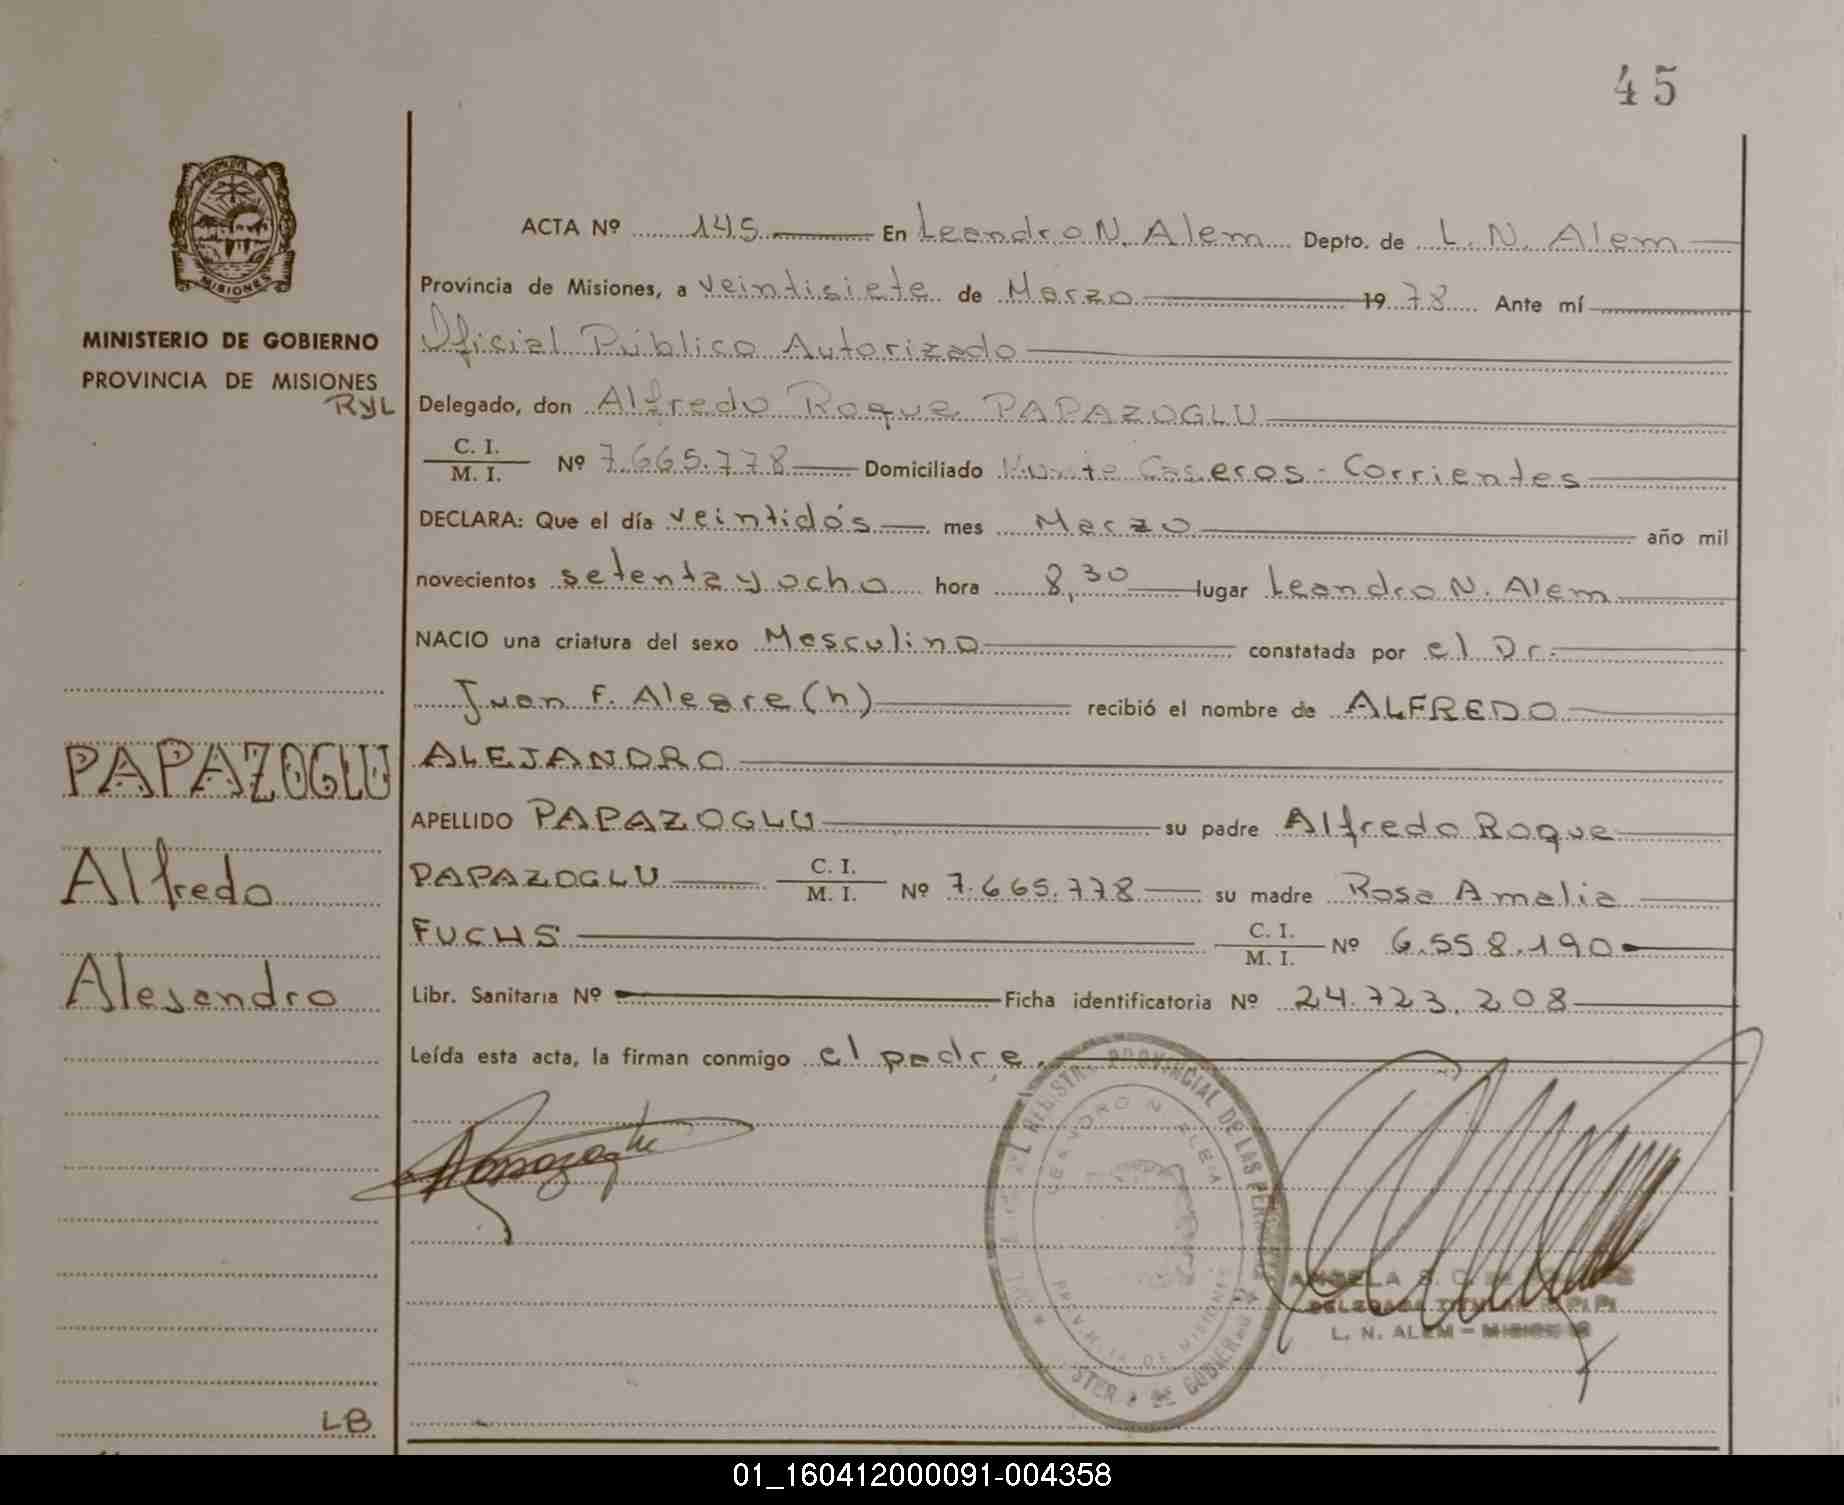 45
MISIONES
MINISTERIO DE GOBIERNO
PROVINCIA DE MISIONES
RyL
PAPAZOGLU
Alfredo
Alejandro
LB
ACTA Nº 145 En Leandro N. Alem Depto. de L. N. Alem
Provincia de Misiones, a veintisiete de Marzo 1978 Ante mí
Oficial Público Autorizado
Delegado, don Alfredo Roque PAPAZOGLU
C. I.
M. I. Nº 7.665.778 Domiciliado Monte Caseros - Corrientes
DECLARA: Que el día veintidós mes Marzo año mil
novecientos setenta y ocho hora 8,30 lugar Leandro N. Alem
NACIO una criatura del sexo Masculino constatada por el Dr.
Juan F. Alegre (h) recibió el nombre de ALFREDO
ALEJANDRO
APELLIDO PAPAZOGLU su padre Alfredo Roque
PAPAZOGLU C. I. M. I. Nº 7.665.778 su madre Rosa Amalia
FUCHS C. I. M. I. Nº 6.558.190
Libr. Sanitaria Nº Ficha identificatoria Nº 24.723.208
Leída esta acta, la firman conmigo el padre.
REGISTRO PROVINCIAL DE LAS PERSONAS
LEANDRO N. ALEM
PROVINCIA DE MISIONES
DE GOBIERNO
ANGELA S. C.
DELEGADA TITULAR
L. N. ALEM - MISIONES
01_160412000091-004358